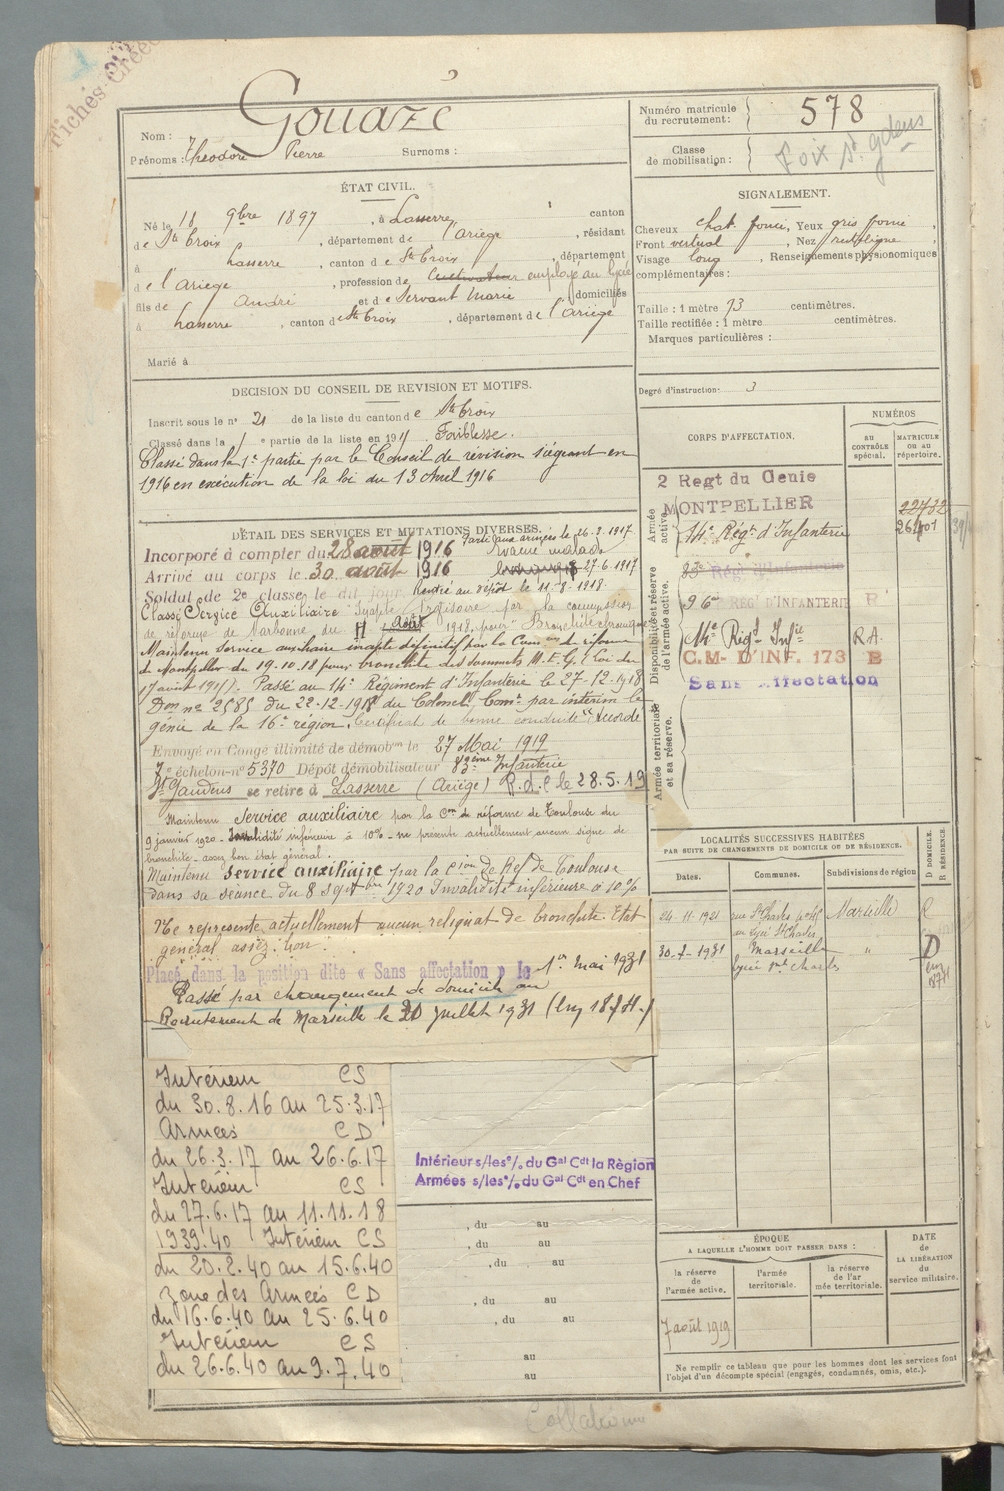 Fichés-Créée
Gouazé
Nom :
Prénoms : Théodore Pierre Surnoms :
Numéro matricule du recrutement : 578
Classe de mobilisation :
Foix St gdens
ÉTAT CIVIL.
Né le 18 9bre 1897, à Lasserre, canton
de Ste Croix, département de l'ariège, résidant
à Lasserre, canton de Ste Croix, département
de l'ariège, profession de Cultivateur employé au lycée
fils de André et de Servant Marie domiciliés
à Lasserre, canton de Ste Croix, département de l'ariège
Marié à
SIGNALEMENT.
Cheveux chat. foncé, Yeux gris foncé,
Front vertical, Nez rectiligne,
Visage long, Renseignements physionomiques
complémentaires :
Taille : 1 mètre 73 centimètres.
Taille rectifiée : 1 mètre centimètres.
Marques particulières :
Degré d'instruction: 3
DECISION DU CONSEIL DE REVISION ET MOTIFS.
Inscrit sous le n° 21 de la liste du canton de Ste Croix
Classé dans la 1 e partie de la liste en 191 Faiblesse.
Classé dans la 1e partie par le Conseil de revision siégeant en
1916 en exécution de la loi du 13 Avril 1916
DÉTAIL DES SERVICES ET MUTATIONS DIVERSES.
Parti aux armées le 26.3.1917
Incorporé à compter du 28 août 1916 Evacué malade
Arrivé au corps le 30 août 1916 27.6.1917
Soldat de 2e classe le dit jour Rentré au dépôt le 11.8.1918
Classé Service Auxiliaire par la commission
de réforme de Narbonne du août 1918, pour Bronchite chronique
Maintenu service auxiliaire inapte définitif par la Comon de réforme
de Montpellier du 19.10.18 pour bronchite des sommets M.E.G. (Loi du
17 août 1915). Passé au 14e Régiment d'Infanterie le 27-12-1918
Don no 2585 du 22-12-1918 du Colonel, Comt par intérim le
génie de la 16e région. Certificat de bonne conduite "Accordé"
Envoyé en Congé illimité de démobon le 27 Mai 1919
7e échelon-n° 5370 Dépôt démobilisateur 83ème Infanterie
St Gaudens se retire à Lasserre (Ariège) R.d.l le 28.5.19
Maintenu Service auxiliaire par la Con de réforme de Toulouse du
9 janvier 1920 - Invalidité inférieure à 10% - ne présente actuellement aucun signe de
bronchite - assez bon état général.
Maintenu Service auxiliaire par la Cion de Réf de Toulouse
dans sa séance du 8 septbre 1920 Invalidité inférieure à 10%
Ne représente actuellement aucun reliquat de bronchite Etat
général assez bon.
Placé dans la position dite « Sans affectation » le 1er mai 1931
Passé par changement de domicile au
Recrutement de Marseille le 21 juillet 1931
Intérieur CS
du 30.8.16 au 25.3.17
Armées CD
du 26.3.17 au 26.6.17
Intérieur CS
du 27.6.17 au 11.11.18
1939.40 Intérieur CS
du 20.2.40 au 15.6.40
Zone des Armées CD
du 16.6.40 au 25.6.40
Intérieur CS
du 26.6.40 au 9.7.40
Intérieur s/les % du Gal Cdt la Règion
Armées s/les % du Gal Cdt en Chef
, du au
, du au
, du au
, du au
, du au
au
au
CORPS D'AFFECTATION.
NUMÉROS
AU CONTRÔLE spécial.
MATRICULE ou au répertoire.
Armée active.
2 Regt du Genie
MONTPELLIER
22432
14e Régt d'Infanterie 26401
Disponibilité et réserve de l'armée active.
83e Régt d'Infanterie
96e REGt D'INFANTERIE R
14e Régt Infie R.A.
C.M- D'INF. 173 B
Sans Affectation
Armée territoriale et sa réserve.
LOCALITÉS SUCCESSIVES HABITÉES
PAR SUITE DE CHANGEMENTS DE DOMICILE OU DE RÉSIDENCE.
Dates. Communes. Subdivisions de région
D DOMICILE. R RÉSIDENCE.
24-11-1921 rue St Charles Marseille R
au Lycée St Charles
30-7-1931 Marseille " D
lycée St Charles
ÉPOQUE
A LAQUELLE L'HOMME DOIT PASSER DANS :
la réserve de l'armée active.
l'armée territoriale.
la réserve de l'armée territoriale.
DATE de LA LIBÉRATION du service militaire.
7 août 1919
Ne remplir ce tableau que pour les hommes dont les services font
l'objet d'un décompte spécial (engagés, condamnés, omis, etc.).